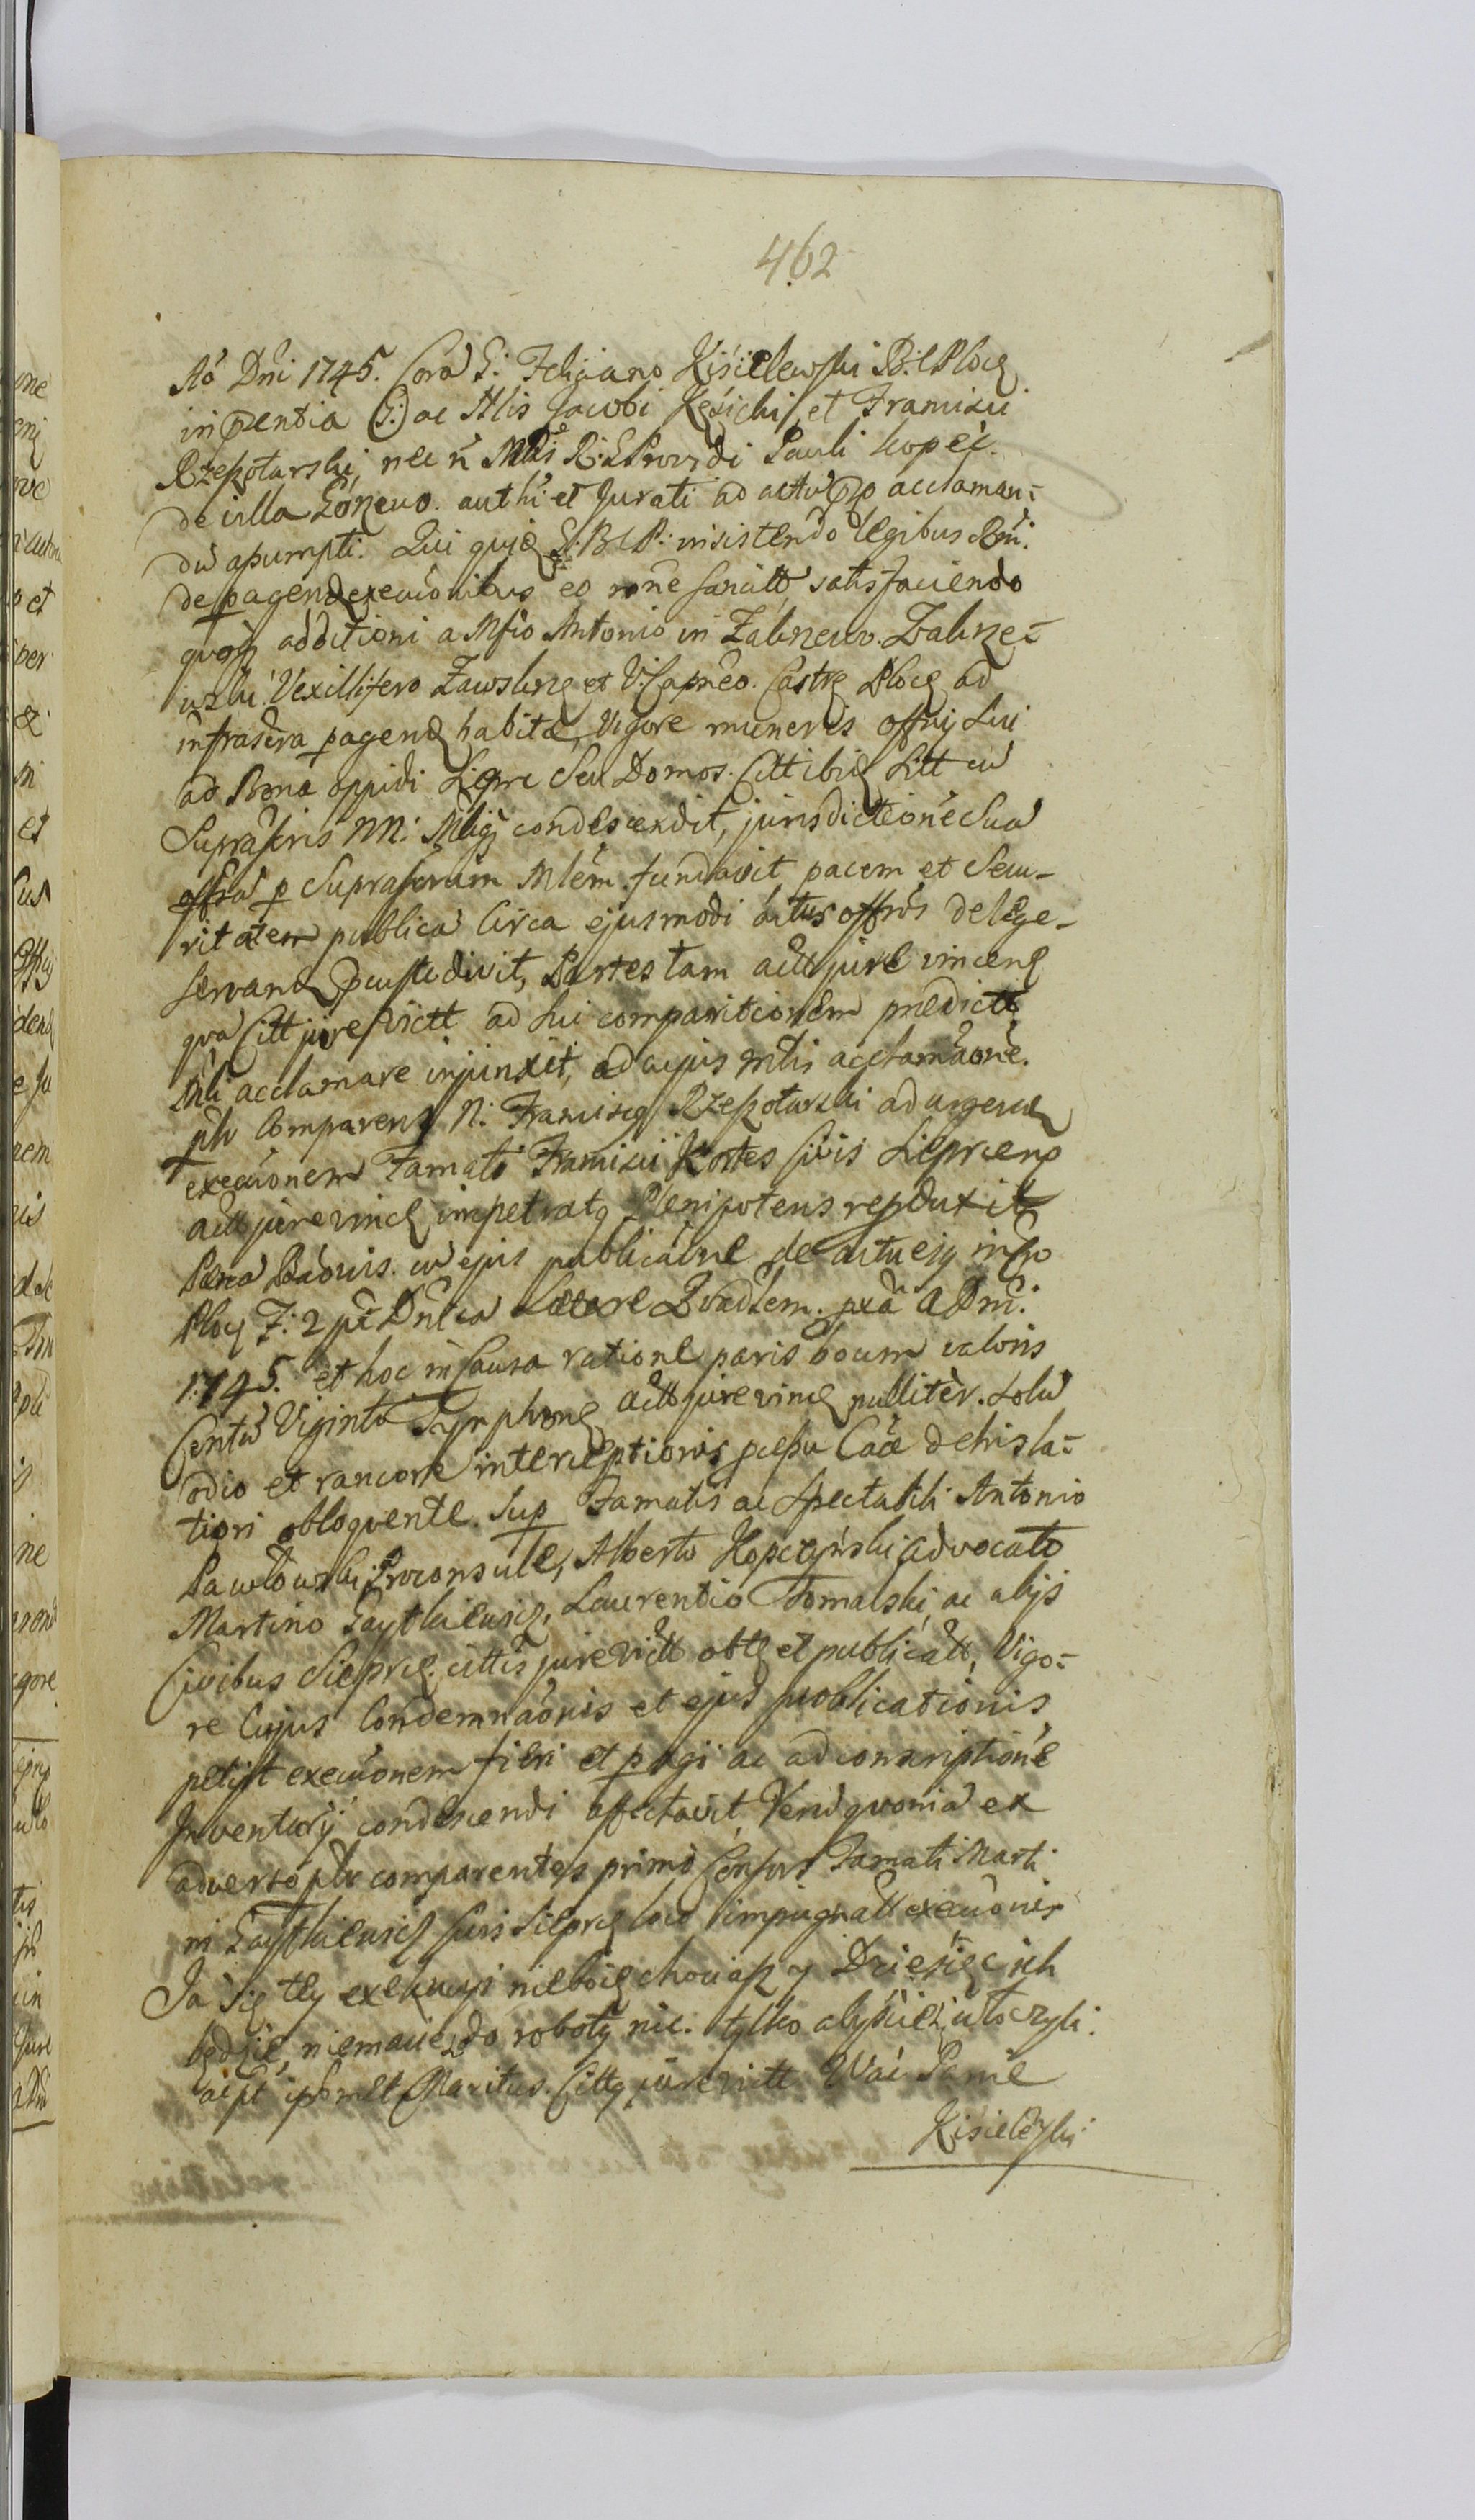 462
Ao Dni 1745. Cora G: Feliciano Kisielewski B: C Ploc
in pntia G: ac Nlis Jacobi Kęsicki, et Francisci
Rzeszotarski, nec n Mlis R: E Providi Pauli kopeć.
de villa Gorzewo. authi et Jurati ad actu acclaman-
du assumpti. Qui quide G: B C P: insistendo legibus Rni.
de pagend executionibus eo nne sancitt, satisfaciendo
additioni a Mfio Antonio in Zabzewo. Zabrze-
wski. Vexillifero Zawskrz et V: Capneo. Castr Ploc ad
infrascra pagend habita, Vigore muneris offij sui
ad Bona oppidi Siepre Seu Domos. Citt ibid sitt cu
Suprascris NN: condescendit, jurisdictione Sua
offsa p Suprascrum Mlem. fundavit pacem et Secu-
ritatem publica Circa ejusmodi actus offsos de lege-
servand pcustodivit, Partes tam actt jure vincen
qva Citt jure victt ad sui comparitionem predictt
Mli acclamare injunxit, ad cujus mlis acclamaone.
plr Comparens N: Francisc Rzeszotarski ad urgend
execuonem Famato Francisci Kortes Civis Sieprcens
actt jurevinc impetrato Plenipotens reproduxit
Pena Baonis. cu ejus publicaone de actu ejq in Cro
Ploc F: 2 pt Dnica Laetare Quadlem. pxa A Dni:
1745. et hoc in Causa ratione paris boum valoris
Centu Viginti Tynphon actt jurevinc nulliter. Solu
odio et rancore interceptionis Caa dehista-
tiori obloqvente. Sup Famatis ac Spectabili Antonio
Pawłowski Proconsule, Alberto Kopczyński advocato
Martino Gaytkiewicz, Laurentio Tomalski, ac alijs
Civibus Sieprc. cittis jurevictt obte et publicatt, Vigo-
re Cujus Condemnaonis et ejusd publicationis
petijt execuonem fieri et pagi ac ad conscriptione
Inventarij condescendi affectavit, Verū qvonia ex
adverso plr comparentes primo Censors Famati Marti
ni Gaytkiewicz Civis Sieprc loco impugnatt execuonis
Ja się tey exekucyi nieboię chociasz y Dziesięc ich
będzie, niemacie do roboty nic. tylko abyscie utoczyli.
acpt ipsemet Maritus. Citto jurevictt Wac Panie
Kisielewski